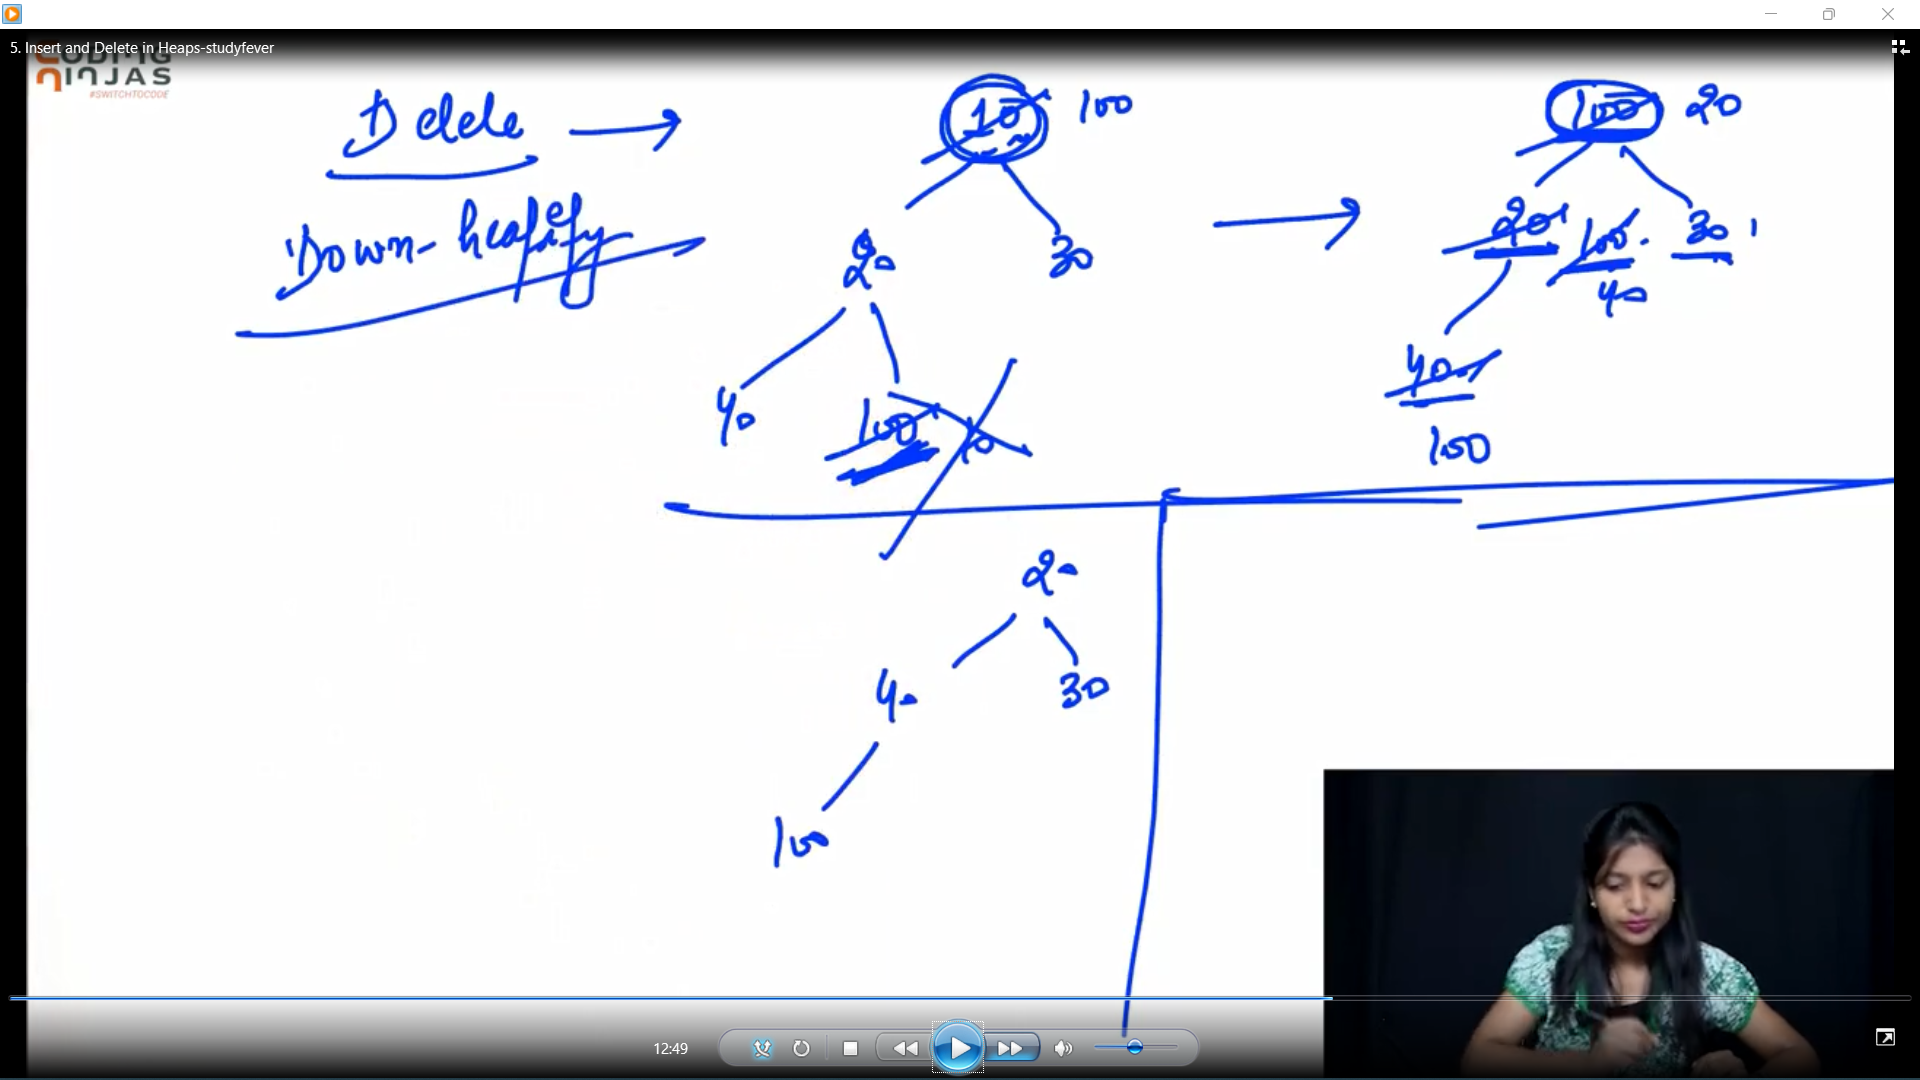 5. Insert and Delete in Heaps-studyfever
CODING
NINJAS
#SWITCHTOCODE
Delete →
Down-heapify
10 100
20 30
40 100 10
→
100 20
20 100 30
40
40
100
20
40 30
100
12:49